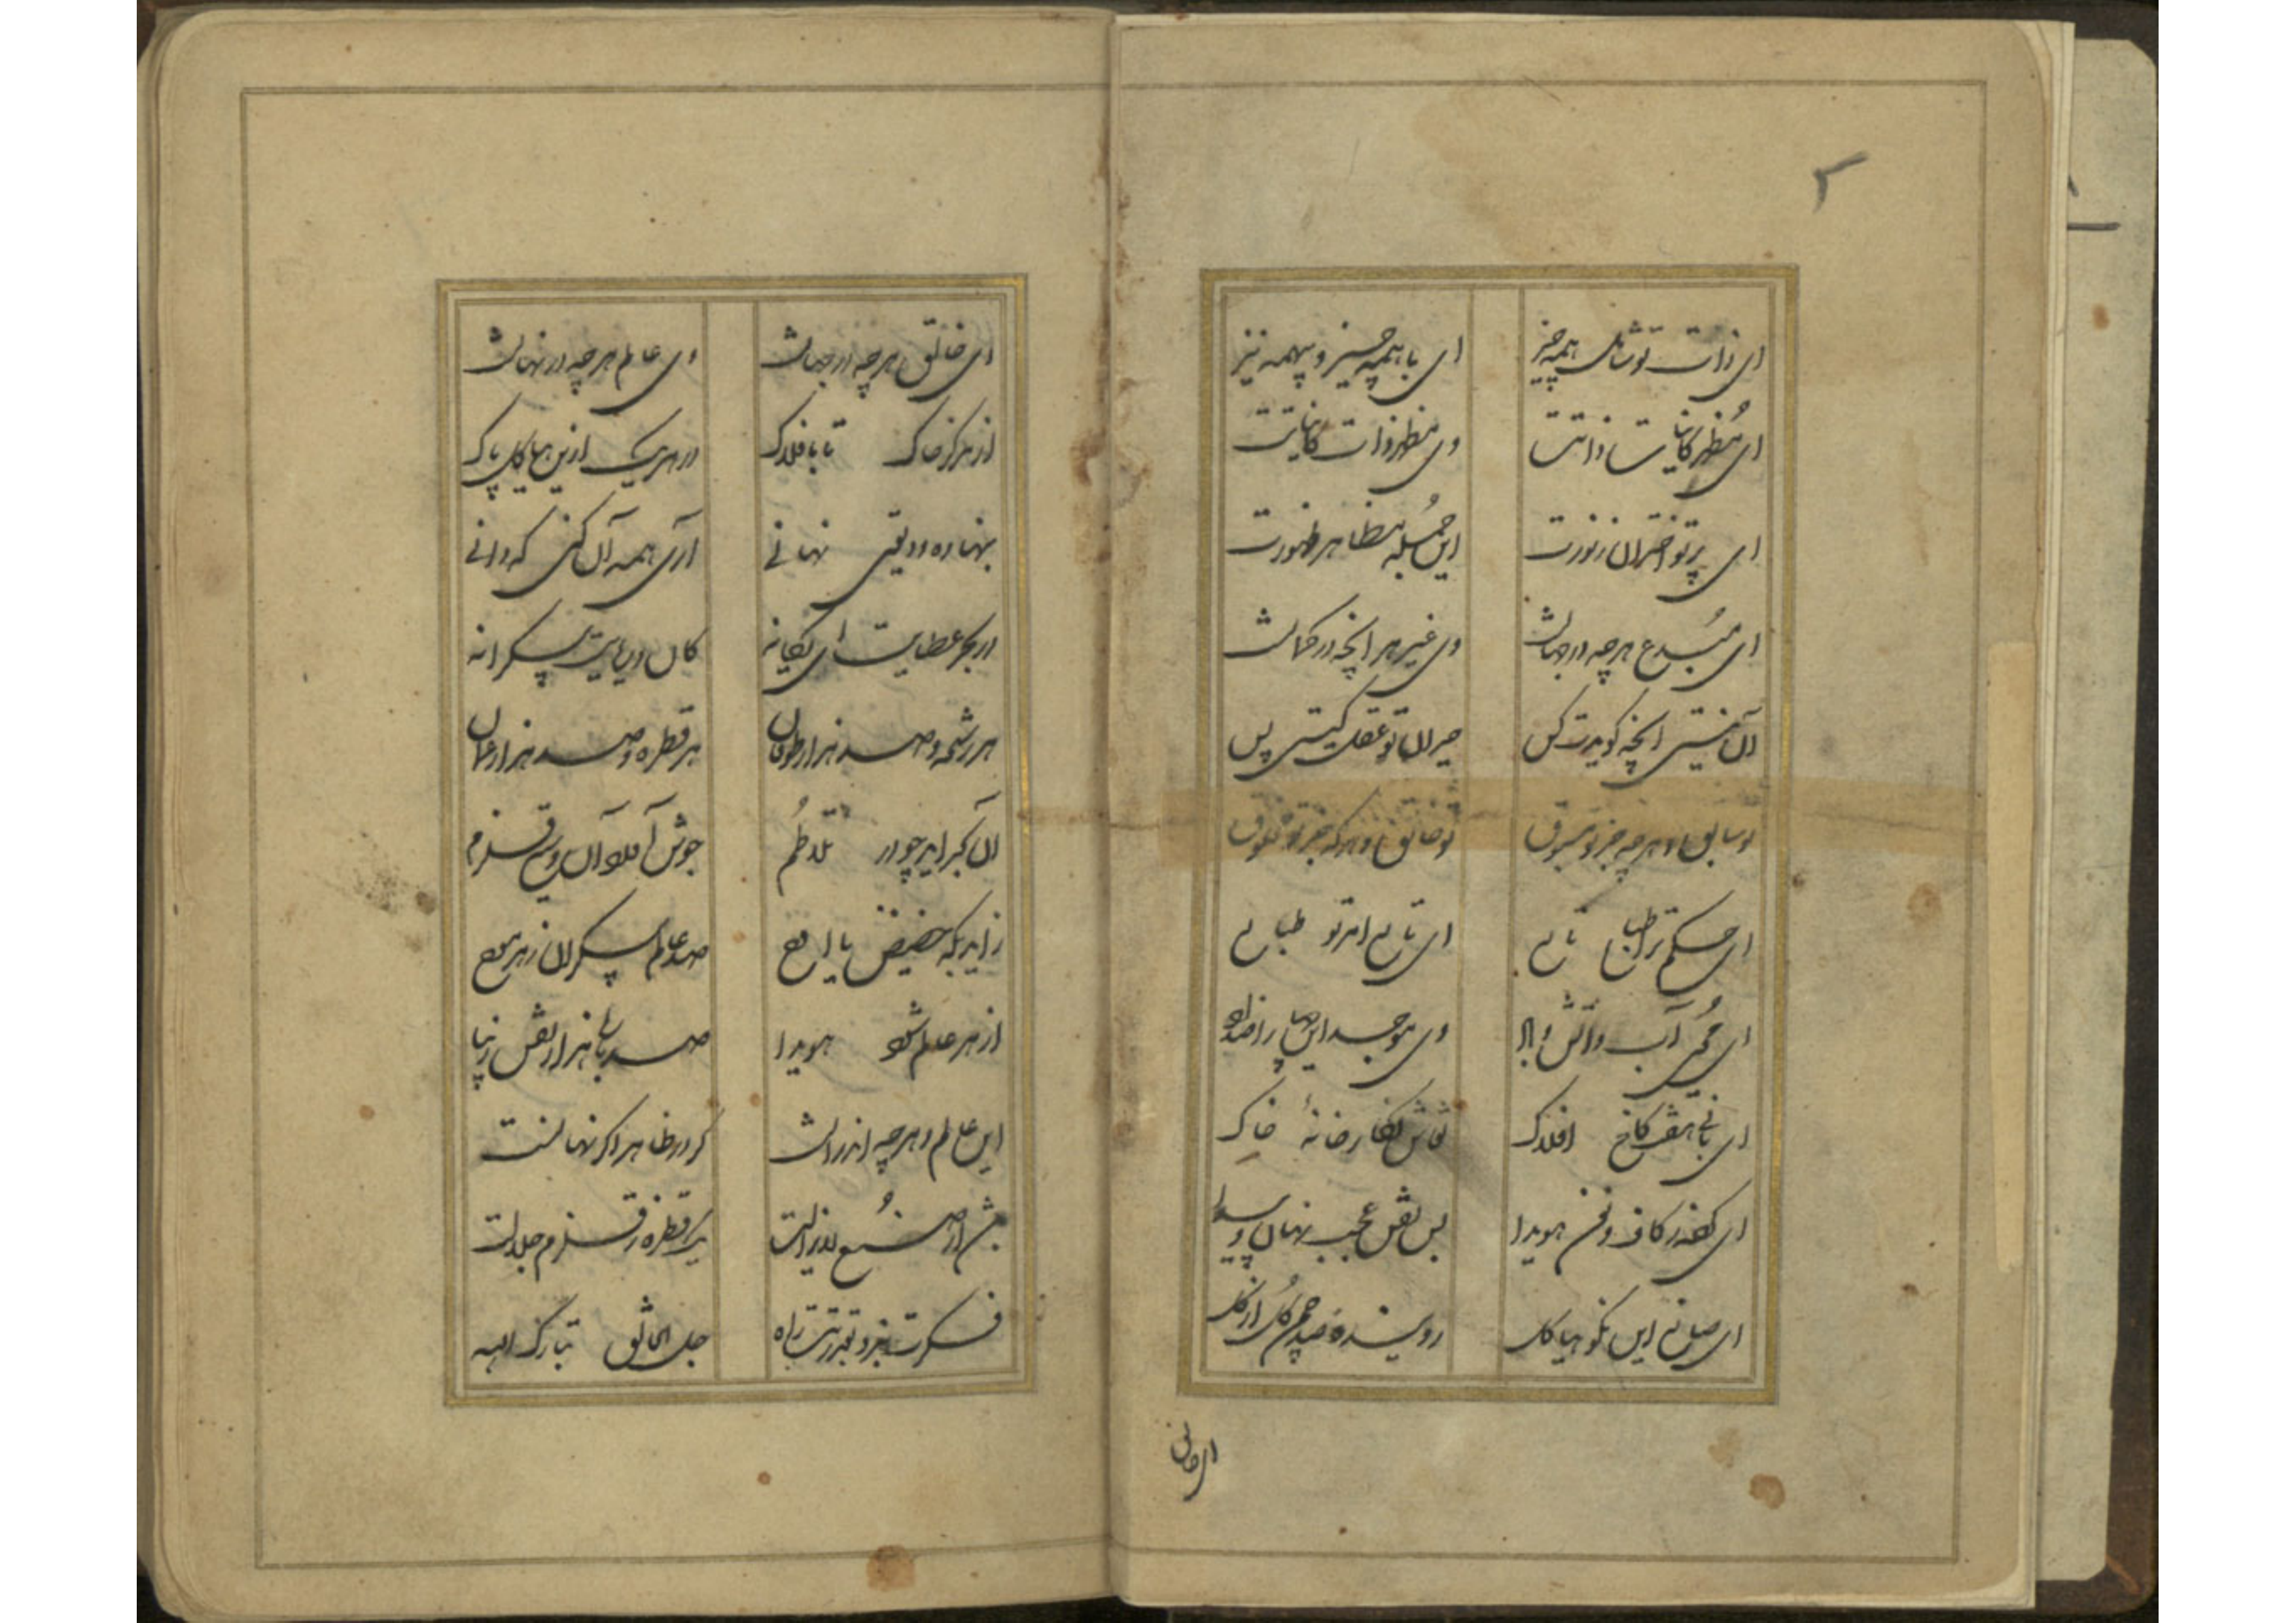 ۲
ای ذات تو شامل همه چیز ای با همه چیز و بیهمه نیز
ای مُظهر کاینات ذاتت وی مظهر ذات کایناتت
ای پرتو اختران ز نورت این جمُله مظاهر ظهورت
ای مُبدع هرچه در جهانست وی غیر هر انچه در کمانست
آن نیستی انچه کویدت کس حیران تو عقل کیتی و بس
تو سابق و هرچه جز تو مسبوق تو خالق و هرکه جز تو مخلوق
ای حکم ترا طبایع تابع ای تابع امر تو طبایع
ای مُحیی آب و آتش و باد وی موجد این چهار اضداد
ای بانی هفت کاخ افلاک نقاش نکارخانهٔ خاک
ای کرده ز کاف و نون هویدا بس نقش عجب نهان و پیدا
ای صانع این نکو هیاکل رویندهٔ صد چمن کُل از کل
ای خالق
ای خالق هرچه در جهانست وی عالم هرچه در نهانست
از مرکز خاک تا بافلاک در هر یک ازین هیاکل پاک
بنهاده ودیعتی نهانی آری همه آن کنی که دانی
از بحر عطایت ای یکانه کان دریاییست بیکرانه
هر رشحه و صد هزار طوفان هر قطره و صد هزار عمان
آن بحر اید چو در تلاطُم جوش آمده آن وسیع قلزم
زاید بکه حضیض یا اوج صد عالم بیکران ز هر موج
از هر عالم شود هویدا صد باره هزار نقش زیبا
این عالم و هرچه اندرانست کر در ظاهر اکر نهانست
از صُنع لایزالت یک قطره ز قلزم جلالت
فکرت نبرد بقدرتت راه جل الخالق تبارک الله